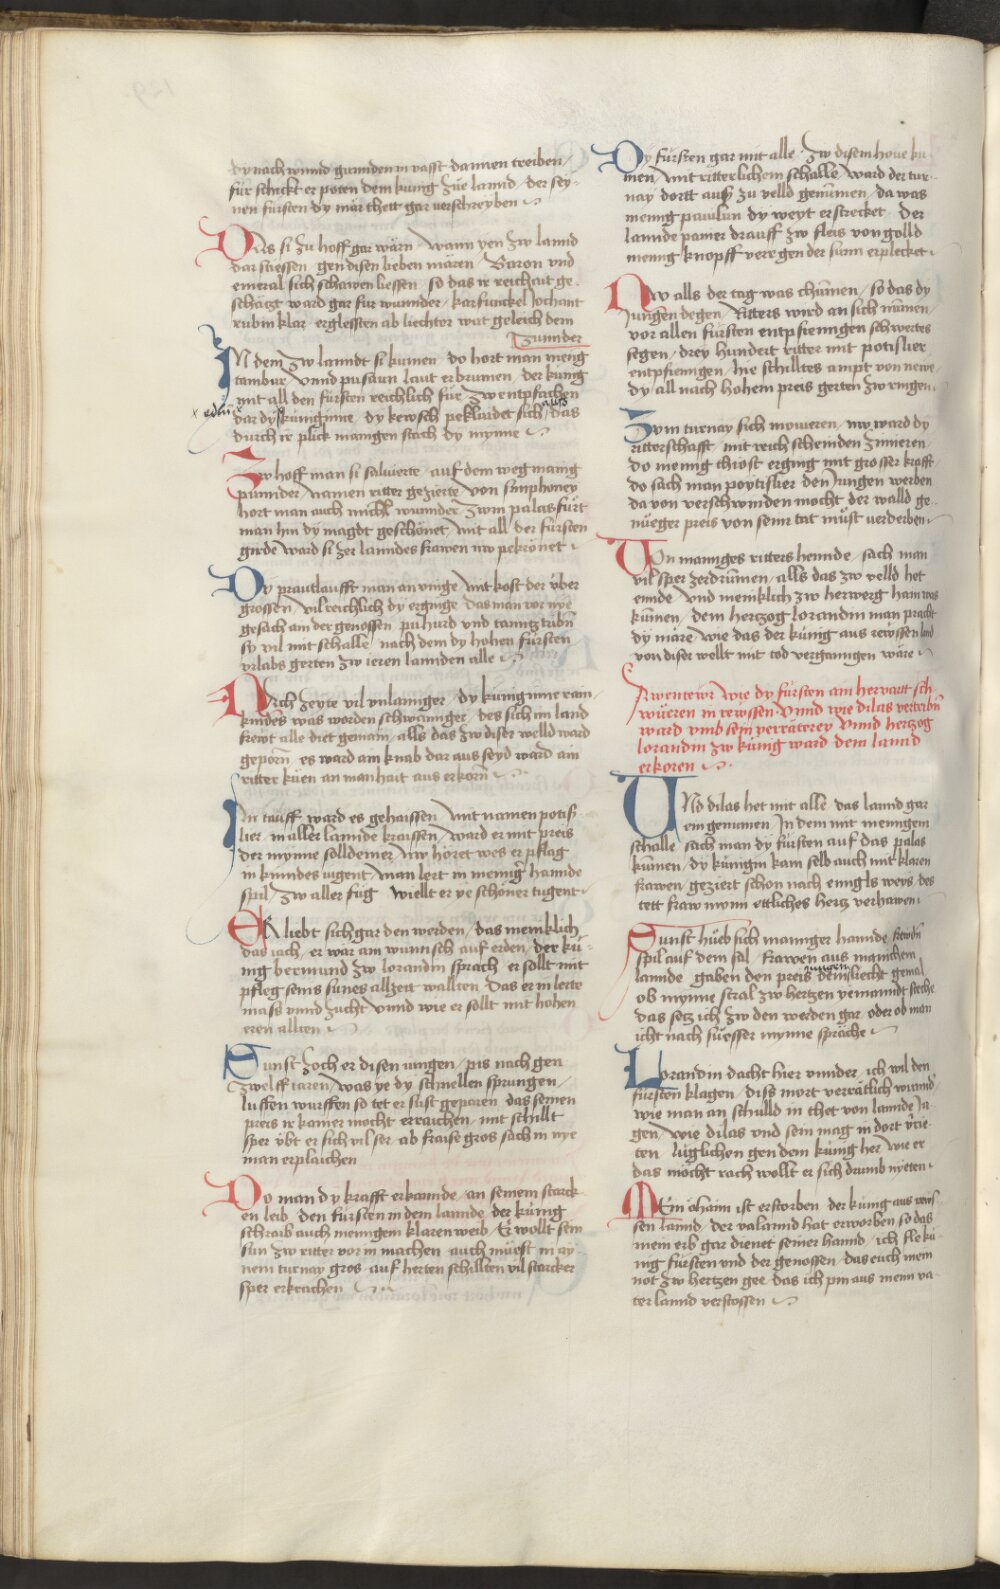 dy nach wunnd grunnden in vasst dannen treiben /
für schickt er poten dem kunig zue lannd / der sey-
nen fursten dy mär thett gar verschreyben
Ols si zu hoff gar wärn / wann yen zw lannd
dar stiessen / gen disen lieben mären / Baron vnd
emeral sich schawen liessen / so das ir reichait ge-
schätzt ward gar fur wunnder / karfunckel Jochant
rubin klar / erglessten ab liechter wat geleich dem
zunnder
IN dem zw lanndt si kumen / do hort man menig
tambur / vnnd pusaun laut erbrumen / der künig
mit all den fürsten reichlich für / zw entpfachen
x edln
dar dy x künginne / dy kewsch peklaidet sich / aufs das
durch ir plick manigen stach dy mynne
Zw hoff man si saluierte / auf dem weg manig
punnder / namen ritter gezierte / von simphoney
hort man auch michl wunnder / zwm palas fürt
man hin dy magdt geschönet / mit all der fursten
girde ward si zer lanndes frawen nw pekrönet
Dy prautlaufft man an vinge / mit kost der vber
grossen / vil reichlich dy erginge / das man vor nye
gesach am der genossen / puhurd vnd tanntz tribn
sy vil mit schalle / nach dem dy hohen fürsten
vrlabs gerten zw ieren lannden alle
Nach zeyte vil vnlanniger / dy künginne rain /
kindes was worden schwanniger / des sich im land
frewt alle diet gemain / alls das zw diser welld ward
geporn / es ward ain knab dar aus seyd ward ain
ritter küen an manhait aus erkorn
In tauff ward es gehaissen / mit namen potis-
lier / in aller lannde kraissen / ward er mit preis
der mynne solldenier / Nw höret wes er pflag
in kinndes iugent / man lert in menigr hannde
spil / zw aller füg / wiellt er ye schöner tugent
ER liebt sich gar den werden / das meniklich
das iach / er war am wunnsch auf erden / der kü-
nig bermund zw lorandin sprach / er sollt mit
pfleg seins sunes allzeit wallten / das er in lerte
mass vnnd zucht / vnnd wie er sollt mit hohen
eren allten
Sunst zoch er disen iungen / pis nach gen
zwelff iaren / was ye dy schnellen sprungen /
luffen wurffen so tet er sust geparen / das seinen
preis ir kainer mocht erraichen / mit schillt
sper vbt er sich vil ser / ab fraise gros sach in nye
man erplaichen
Do man dy krafft erkannde / an seinem starck-
en leib / den fürsten in dem lannde / der künig
schraib auch menigem klaren weib / Er wollt sein
sun zw ritter vor in machen / auch müest in ay-
nem turnay gros / auf herten schillten vil starcker
sper erkrachen
Dy fürsten gar mit alle / zw disem houe ku-
men / mit ritterlichem schalle / ward der tur-
nay dortt aufs zu velld genümen / da was
menig paulun dy weyt erstrecket / der
lannde paner drauff zw fleis von golld
menig knopff verr gen der sunn erplecket
NW alls der tag was chumen / so das dy
Jungen degen / Ritters wird an sich nümen /
vor allen fürsten entpfienngen schwertes
segen / drey hundert ritter mit potislier
entpfienngen / hie schilltes ampt von newe
dy all nach hohem preis gerten zw ringen
Zwm turnay sich mouieren / nw ward dy
ritterschafft / mit reich scheinden zimieren /
do menig thiost erging mit grosser krafft
do sach man poytislier den Jungen werben
da von verschwinden mocht der walld ge-
nueger preis von seinr tat müst verderben
Von manniges ritters hennde / sach man
vil sper zerdrümen / alls das zw velld het
ennde / vnd meniklich zw herwerg haim was
kümen / dem hertzog lorandin man pracht
dy märe / wie das der künig aus rewssen land
von diser wellt mit tod vergannigen wäre
Awentewr wie dy fürsten ain hervartt sch-
wüeren in rewssen / vnnd wie dilas vertribn
ward vmb sein verräterey / vnnd hertzog
lorandin zw künig ward dem lannd
erkoren
UNd dilas het mit alle / das lannd gar
ein genumen / In dem mit menigem
schalle / sach man dy fürsten auf das palas
kümen / dy künigin kam selb auch mit klaren
frawen / geziert schon nach enngls weys / des
tett fraw mynn ettliches hertz verhawen
Sunst hueb sich manniger hannde / frewdn
spil auf dem sal / frawen aus manichem
lannde / gaben den preis dem iungen knecht gemal
ob mynne stral zw hertzen yemanndt steche
das setz ich zw den werden gar / oder ob man
icht nach süesser mynne spräche
Lorandin dacht hier vnnder / ich wil den
fürsten klagen / diss mort verrätlich wunnd /
wie man an schulld in thet von lannde Ja-
gen / wie dilas vnd sein mag in dort verrie-
ten / lüglichen gen dem künig her / wie er
das möcht rach wollt er sich drumb nyeten
MEin öhaim ist erstorben / der künig aus rews-
sen lannd / der valannd hat erworben so das
mein erb gar dienet seiner hannd / ich fle kü-
nig fürsten vnd der genossen / das euch mein
not zw hertzen gee / das ich pin aus meim va-
ter lannd verstossen